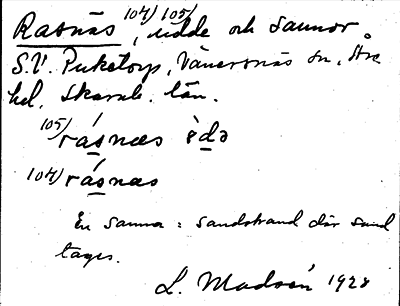 Rasnäs 104) 105), udde och sannor.
S.V. Puketorp, Vänersnäs sn,
hd. Skarab. län.
105) rásnæs
104) rásnæs
En sanna = sandstrand där sand
tages.
L. Madsén 1928